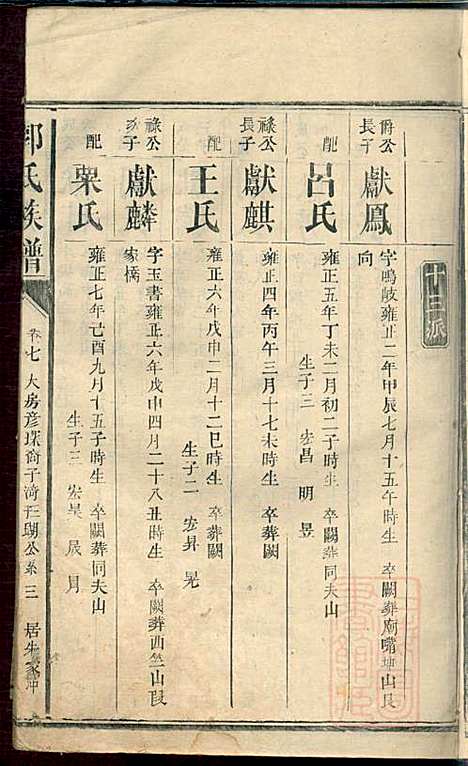 十三派
爵公長子 獻鳳 字鳴岐雍正二年甲辰七月十五午時生 卒闕葬廟嘴坤山艮
向
配 呂氏 雍正五年丁未二月初二子時生 卒闕葬同夫山
生子三 宏昌 明 昱
祿公長子 獻麒 雍正四年丙午三月十七未時生 卒葬闕
配 王氏 雍正六年戊申二月十二巳時生 卒葬闕
生子二 宏昇 晃
祿公次子 獻麟 字玉書雍正六年戊申四月二十八丑時生 卒闕葬西竺山段
家橋
配 栗氏 雍正七年己酉九月十五子時生 卒闕葬同夫山
生子三 宏昊 晟 月
郭氏族譜 卷七 大房彥琛裔子濤于瑚公系 三 居朱家冲